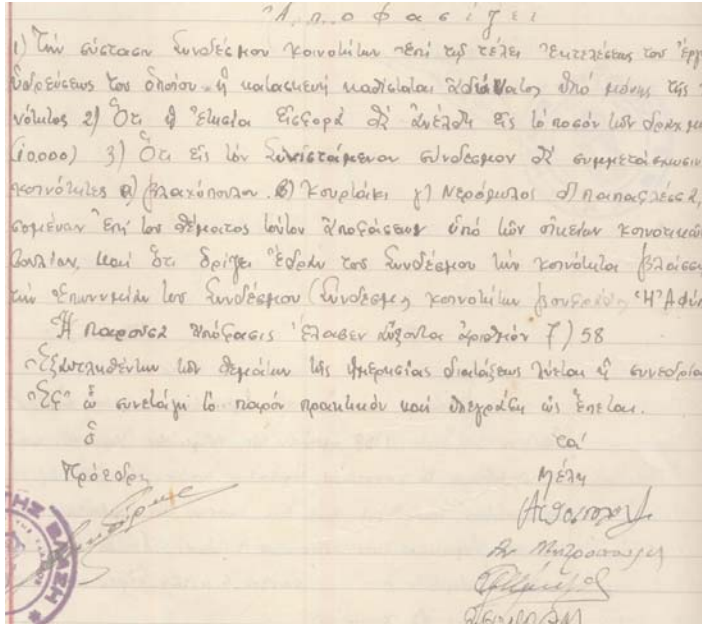 Ἀποφασίζει
1) Τήν σύστασιν Συνδέσμου Κοινοτήτων ἐπί τῷ τέλει ἐκτελέσεως τοῦ ἔργ
ὑδρεύσεως τοῦ ὁποίου ἡ κατασκευή καθίσταται ἀδύνατος ὑπό μόνης τῆς
νότητος 2) Ὅτι ἡ ἐτησία εἰσφορά θά ἀνέλθῃ εἰς τό ποσόν τῶν δραχμ
(10.000) 3) Ὅτι εἰς τόν Συνιστάμενον σύνδεσμον θά συμμετάσχωσιν
κοινότητες α) Βλαχόπουλον β) Κουρτάκι γ) Νερόμυλος δ) Παπαφλέσσα
σομένων ἐπί τοῦ θέματος τούτου ἀποφάσεων ὑπό τῶν οἰκείων κοινοτικῶν
βουλίων, καί ὅτι ὁρίζει ἕδραν τοῦ Συνδέσμου τήν κοινότητα Βλάση
τήν ἐπωνυμίαν τοῦ Συνδέσμου (Σύνδεσμος κοινοτήτων
Ἡ παροῦσα ἀπόφασις ἔλαβεν αὔξοντα ἀριθμόν 7) 58
Ἐξαντληθέντων τῶν θεμάτων τῆς ἡμερησίας διατάξεως λύεται ἡ συνεδρία
Ἐφ' ᾧ συνετάγη τό παρόν πρακτικόν καί ὑπεγράφη ὡς ἕπεται.
Ὁ τά
Πρόεδρος Μέλη
ΒΛΑΣΗ